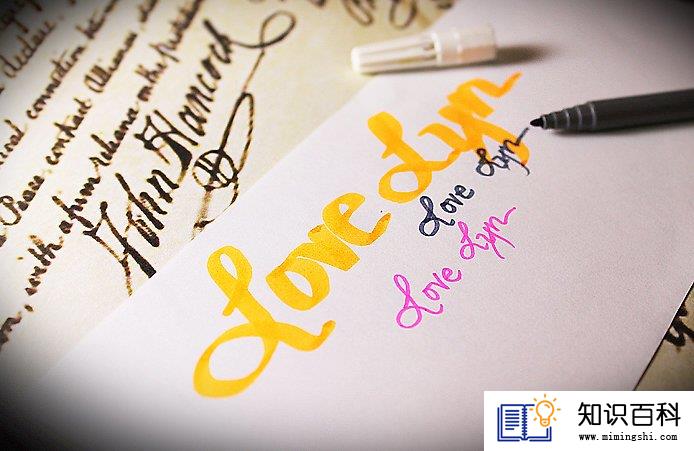 declare,
and connection
Peace, contract Alliances,
with a firm reliance on the protection
John Hancock
Love Lyn
Love Lyn
Love Lyn
知识百科
www.mimingshi.com